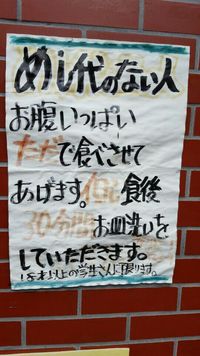 めし代のない人
お腹いっぱい
ただで食べさせて
あげます。但し 食後
30分間 お皿洗いを
していただきます。
18才以上の学生さんに限ります。